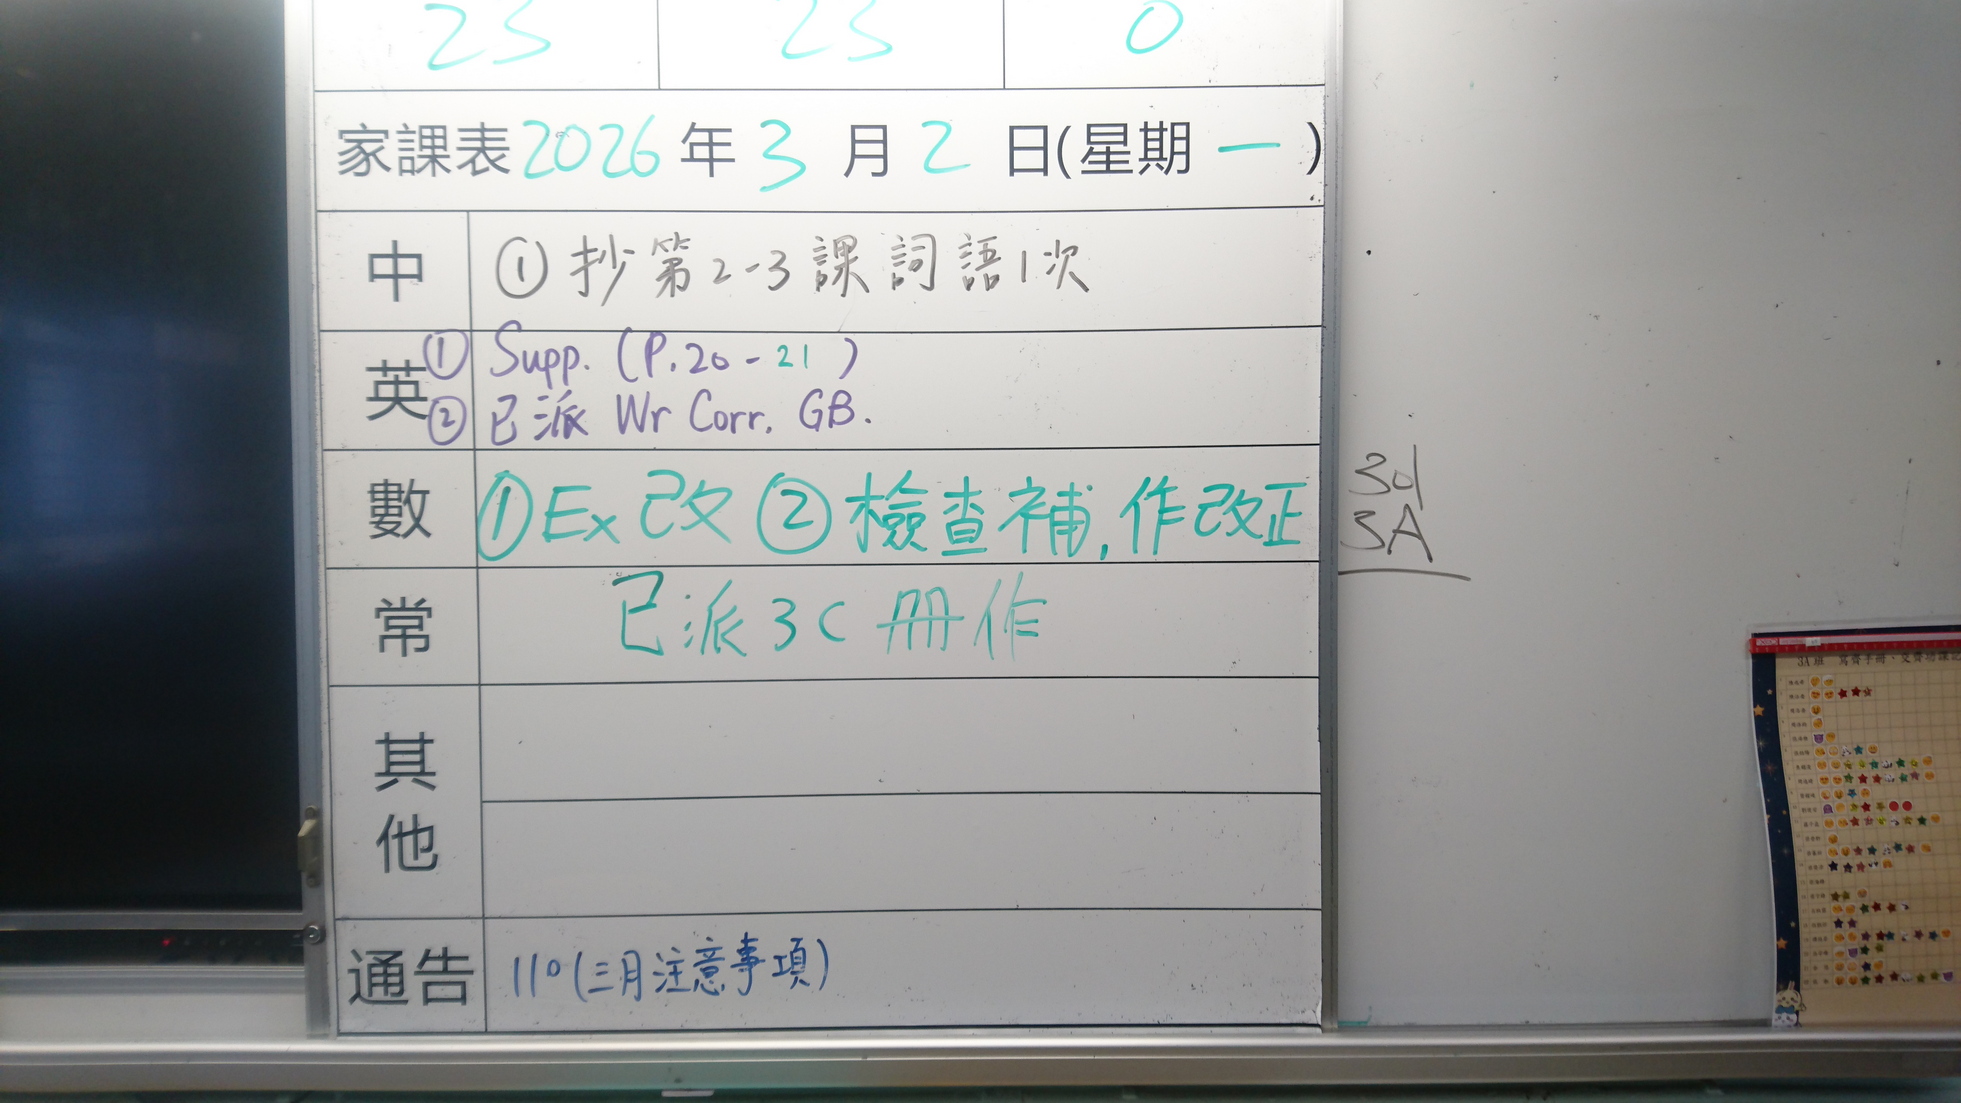 23 23 0
家課表2026年3月2日(星期一)
中 ①抄第2-3課詞語1次
英 ① Supp. (P.20-21)
② 已派 Wr Corr. GB.
數 ①Ex改 ②檢查補,作改正
常 已派3C冊作
其他
通告 110(三月注意事項)
3d
3A
3A班